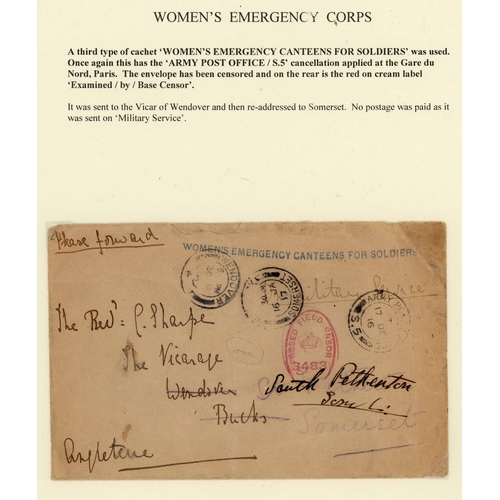 WOMEN'S EMERGENCY CORPS
A third type of cachet 'WOMEN'S EMERGENCY CANTEENS FOR SOLDIERS' was used.
Once again this has the 'ARMY POST OFFICE / S.5' cancellation applied at the Gare du
Nord, Paris. The envelope has been censored and on the rear is the red on cream label
'Examined / by / Base Censor'.
It was sent to the Vicar of Wendover and then re-addressed to Somerset. No postage was paid as it
was sent on 'Military Service'.
Please forward
WOMEN'S EMERGENCY CANTEENS FOR SOLDIERS
WENDOVER
SOMERSET
Military Service
ARMY
17 DE
16
S.5.
PASSED FIELD CENSOR
3493
The Revd. C. Sharpe
The Vicarage
Wendover
Bucks
South Petherton
Somerset
Angleterre